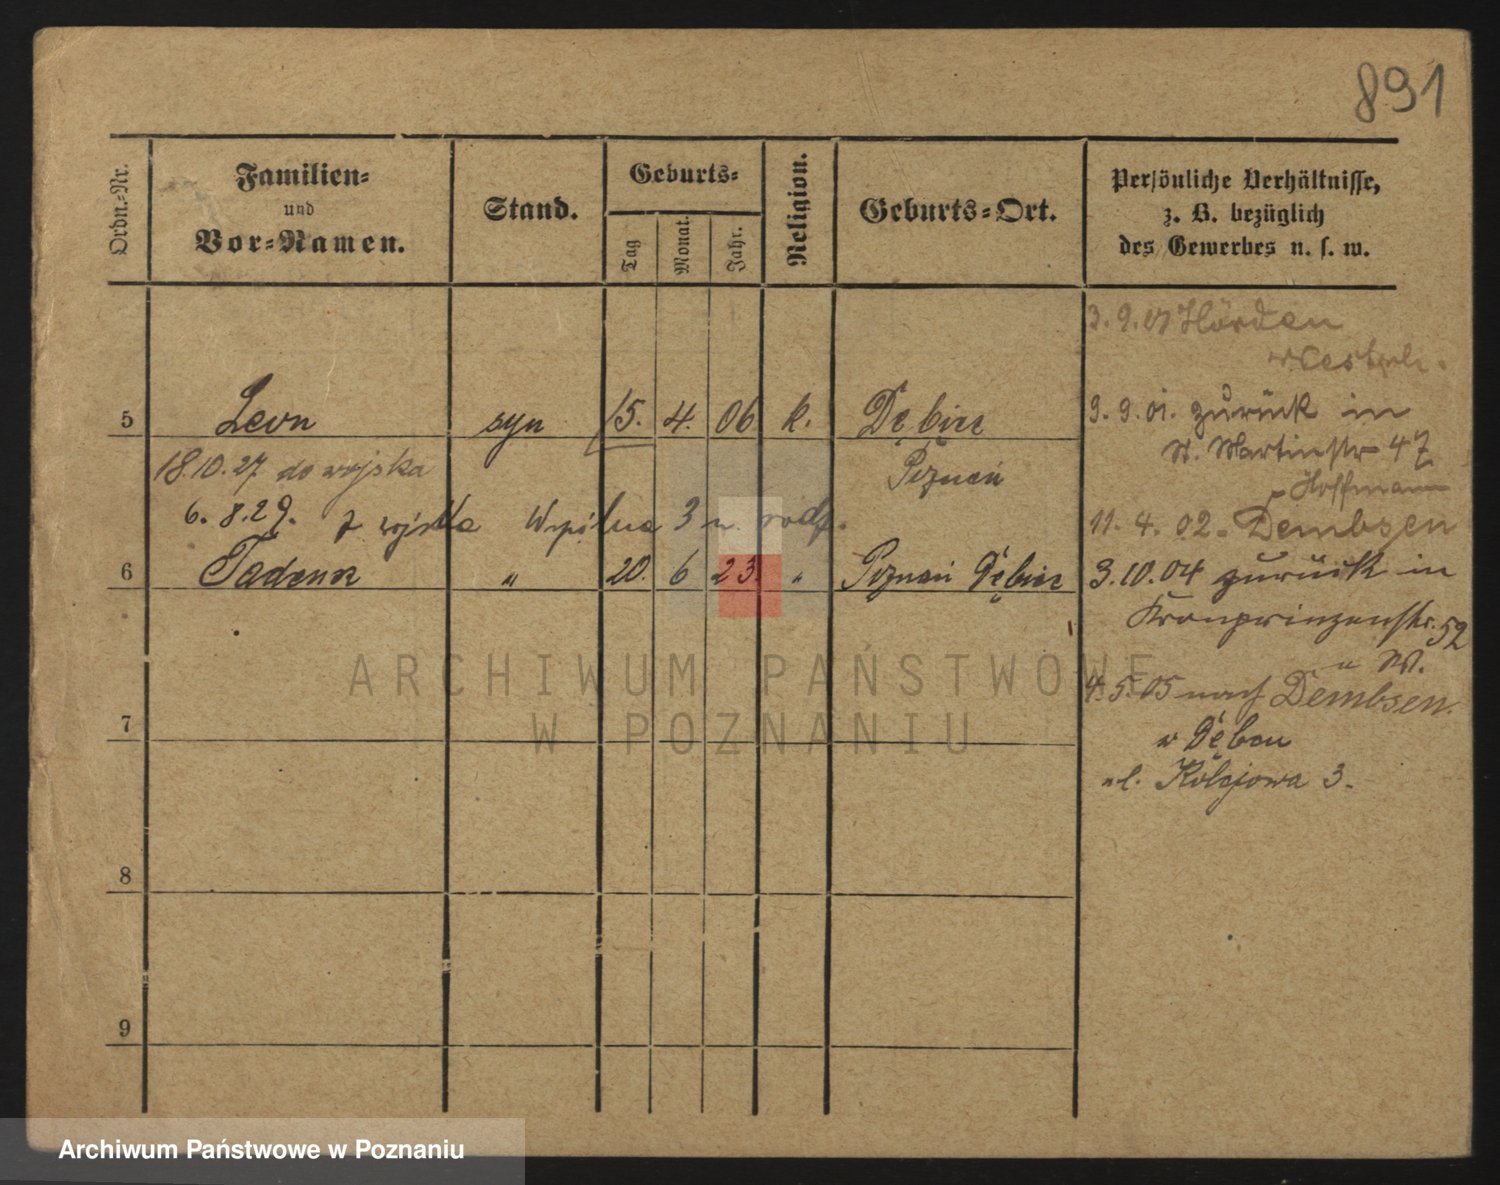 891
Ordn.-Nr.
Familien-
und
Vor-Namen.
Stand.
Geburts-
Tag
Monat.
Jahr.
Religion.
Geburts-Ort.
Persönliche Verhältnisse,
z. B. bezüglich
des Gewerbes u. s. w.
3. 9. 01 Hörden
Westph.
5 Leon syn 15. 4. 06 k. Dębiec
Poznań
9. 9. 01. zurück in
St. Martinstr 47
Hoffmann
18.10.27 do wojska
6. 8. 29. z wojska Wspólna 3 u. rodz.
11. 4. 02. Dembsen
6 Tadeusz " 20. 6 23. " Poznań Dębiec
3.10.04 zurück in
Kronprinzenstr. 52
4. 5. 05 nach Dembsen.
w Dębcu
ul. Kolejowa 3.
7
8
9
ARCHIWUM PAŃSTWOWE
W POZNANIU
Archiwum Państwowe w Poznaniu